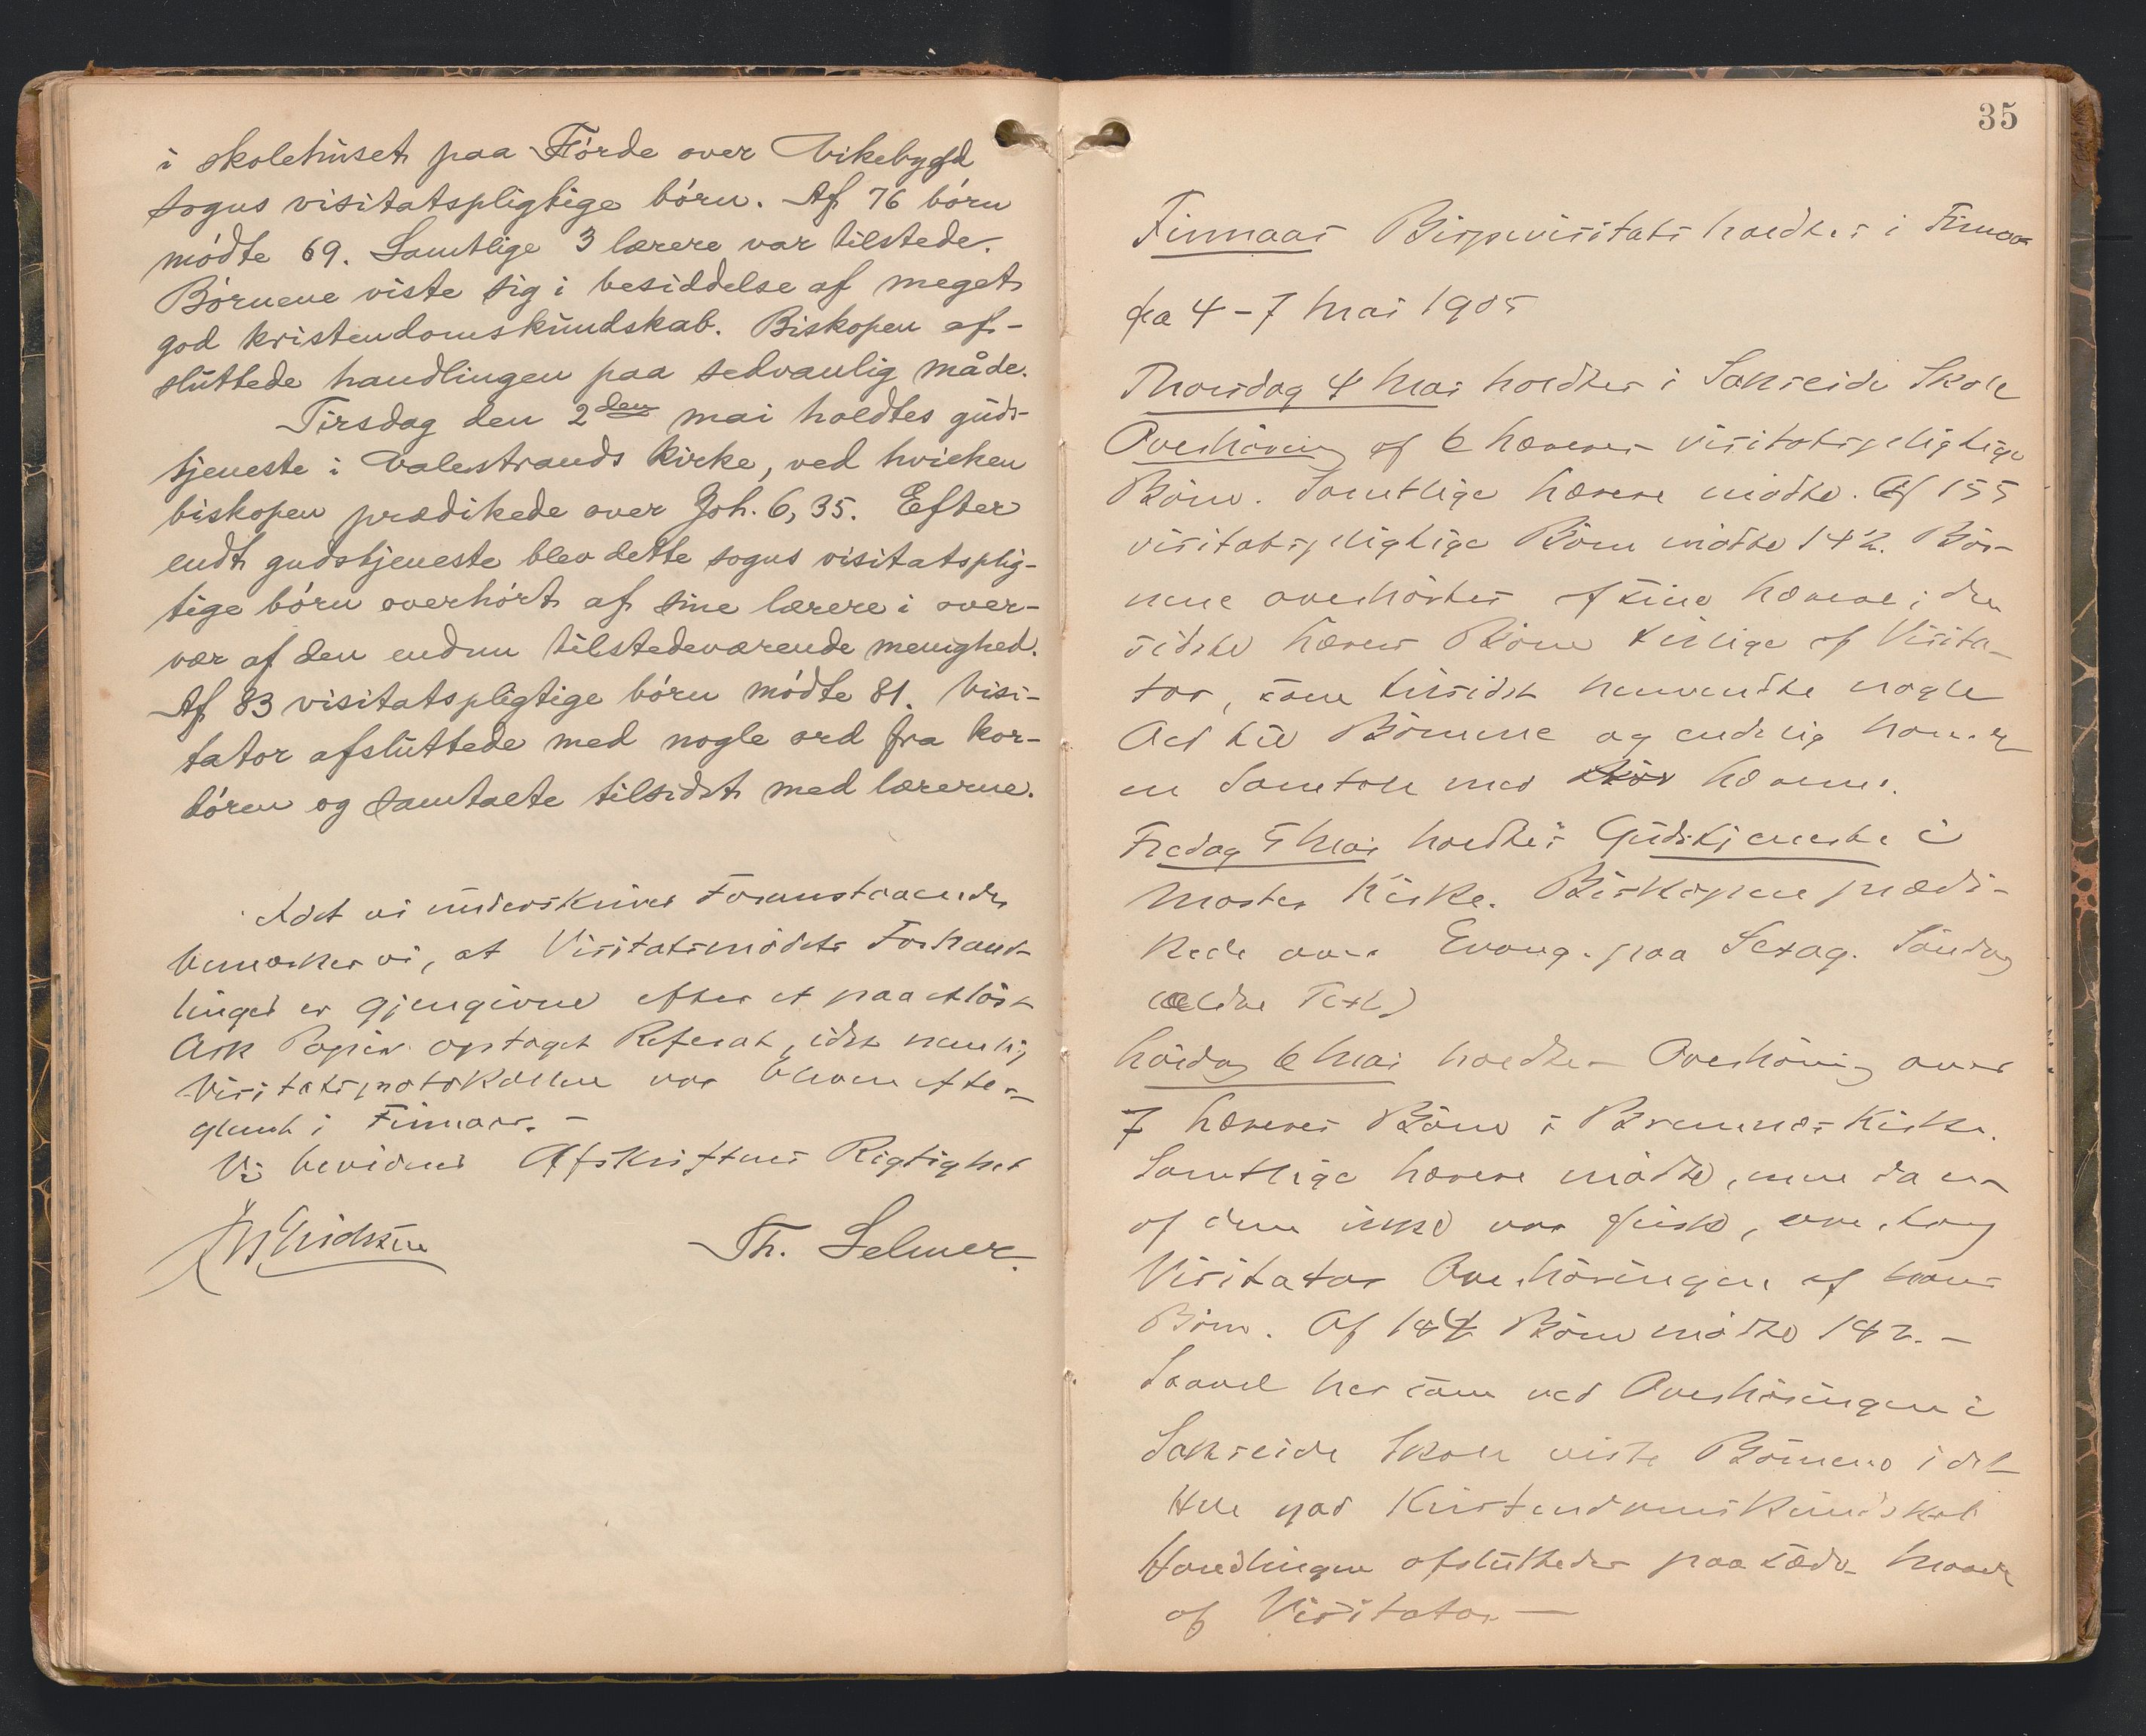 i skolehuset paa Förde over Vikebygd
sogns visitatspligtige börn. Af 76 börn
mödte 69. Samtlige 3 lærere var tilstede.
Börnene viste sig i besiddelse af meget
god kristendomskundskab. Biskopen af-
sluttede handlingen paa sedvanlig måde.
Tirsdag den 2den mai holdtes guds-
tjeneste i Valestrands kirke, ved hvilken
biskopen prædikede over Joh. 6, 35. Efter
endt gudstjeneste blev dette sogns visitatsplig-
tige börn overhört af sine lærere i over-
vær af den endnu tilstedeværende menighed.
Af 83 visitatspligtige börn mödte 81. Visi-
tator afsluttede med nogle ord fra kor-
dören og samtalte tilsidst med lærerne.
Idet vi underskriver Foranstaaende
bemærker vi, at Visitatsmödets Forhand-
linger er gjengivne efter et paa et löst
Ark Papir optaget Referat, idet nemlig
Visitatsprotokollen var bleven efter-
glemt i Finnaas. -
Vi bevidner Afskriftens Rigtighed
Th. Selmer.
35
Finnaas Bispevisitats holdtes i Finnaas
fra 4-7 Mai 1905
Thorsdag 4 Mai holdtes i Sakseide Skole
Overhöring af 6 Læreres visitatspligtige
Börn. Samtlige Lærere mödte. Af 155
visitatspligtige Börn mödte 142. Bör-
nene overhörtes af sine Lærere, den
sidste Lærers Börn tillige af Visita-
tor, som tilsidst henvendte nogle
Ord til Börnene og endelig havde
en Samtale med Lærerne.
Fredag 5 Mai holdtes Gudstjeneste i
Moster Kirke. Biskopen prædi-
kede over Evang. paa Sexag. Söndag
(ældre Text)
Lördag 6 Mai holdtes Overhöring over
7 Læreres Börn i Bremnes Kirke.
Samtlige Lærere mödte, men da en
af dem ikke var frisk, overtog
Visitator Overhöringen af hans
Börn. Af 144 Börn mödte 142. -
Saavel her som ved Overhöringen i
Sakseide Skole viste Börnene i det
Hele god Kristendomskundskab
Handlingen afsluttedes paa sædv. Maade
af Visitator -